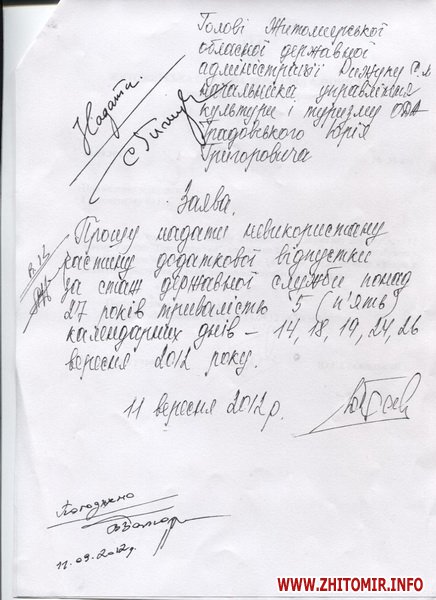 Голові Житомирської
обласної державної
адміністрації Рижуку С.М
начальника управління
культури і туризму ОДА
Градовського Юрія
Григоровича
Надати.
Заява.
Прошу надати невикористану
частину додаткової відпустки
за стаж державної служби понад
27 років тривалістю 5 (п'ять)
календарних днів – 14, 18, 19, 24, 26
вересня 2012 року.
11 вересня 2012 р.
Погоджено
11.09.2012р.
WWW.ZHITOMIR.INFO